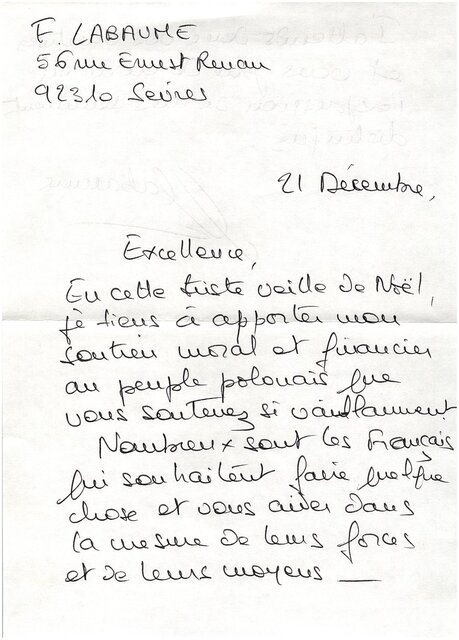 F. LABAUME
56 rue Ernest Renan
92310 Sèvres
21 Décembre,
Excellence,
En cette triste veille de Noël,
je tiens à apporter mon
soutien moral et financier
au peuple polonais que
vous soutenez si vaillamment
Nombreux sont les Français
qui souhaitent faire quelque
chose et vous aider dans
la mesure de leurs forces
et de leurs moyens —